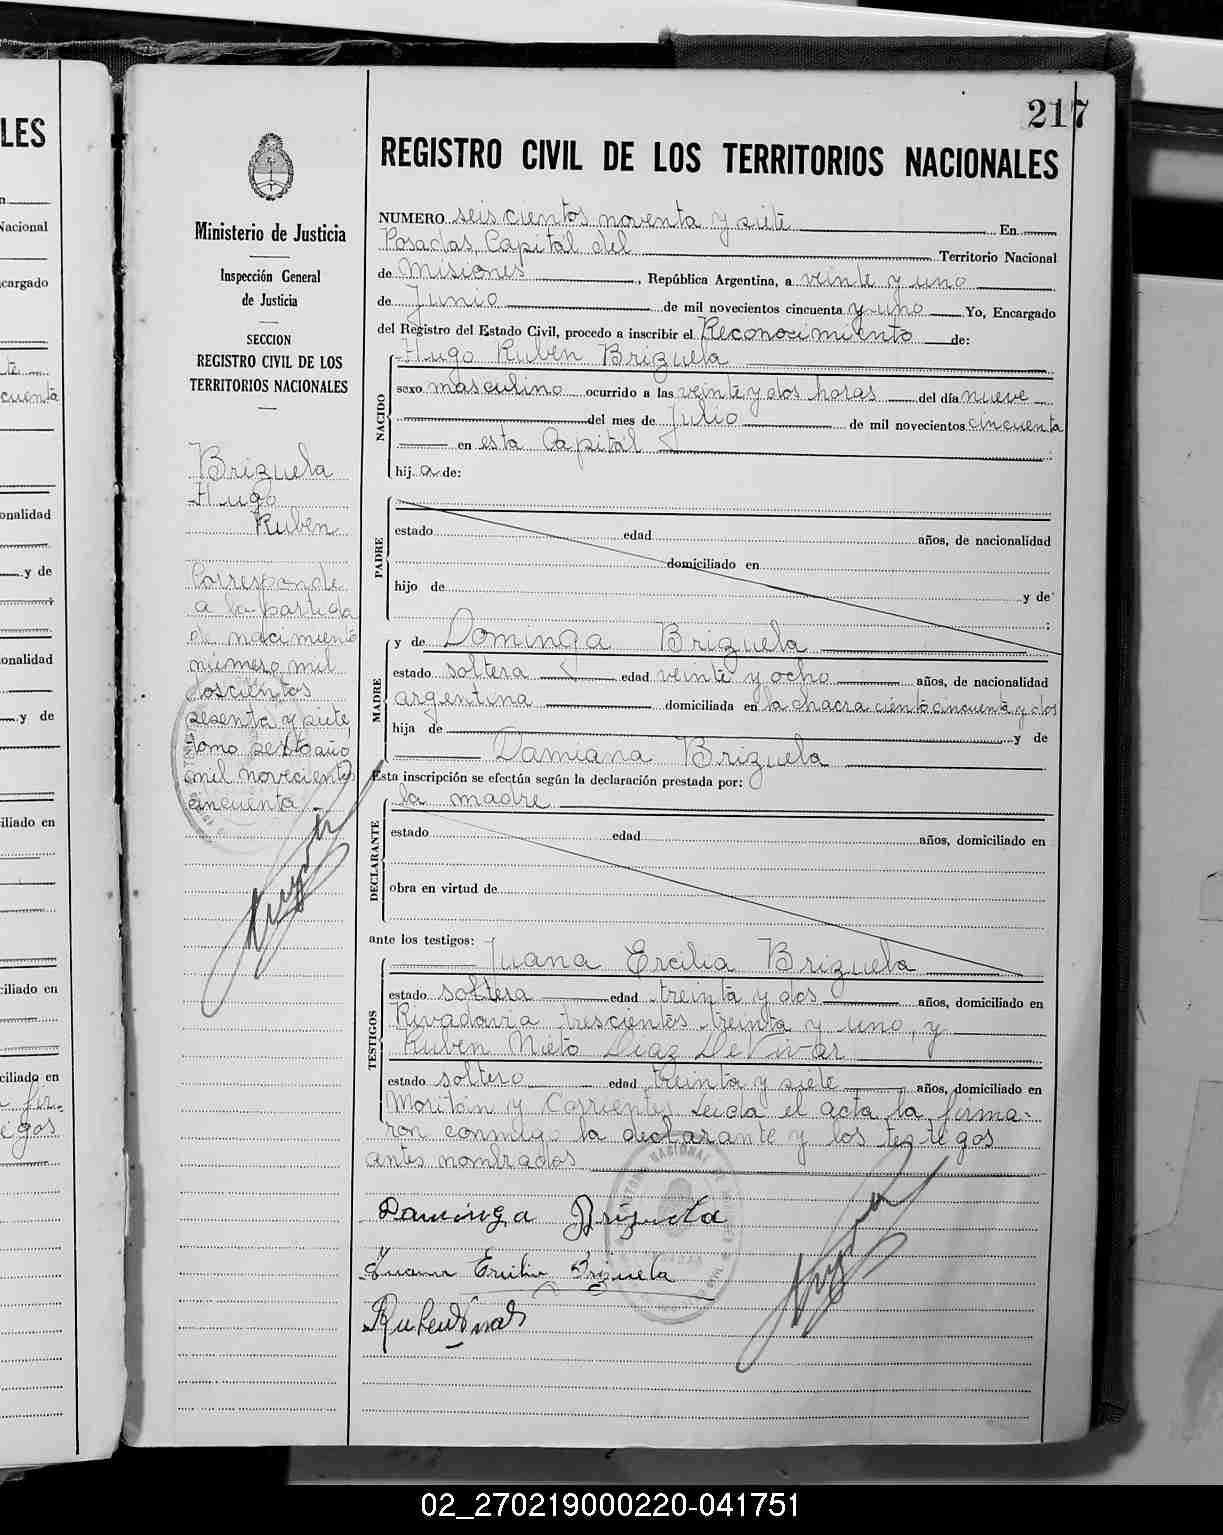 217
REGISTRO CIVIL DE LOS TERRITORIOS NACIONALES
Ministerio de Justicia
Inspección General
de Justicia
SECCION
REGISTRO CIVIL DE LOS
TERRITORIOS NACIONALES
Brizuela
Hugo
Ruben
Corresponde
a la partida
de nacimiento
número mil
doscientos
sesenta y siete,
tomo sexto año
mil novecientos
cincuenta
NUMERO seiscientos noventa y siete En
Posadas, Capital del Territorio Nacional
de Misiones, República Argentina, a veinte y uno
de Junio de mil novecientos cincuenta y uno Yo, Encargado
del Registro del Estado Civil, procedo a inscribir el Reconocimiento de:
NACIDO
Hugo Ruben Brizuela
sexo masculino ocurrido a las veinte y dos horas del día nueve
del mes de Julio de mil novecientos cincuenta
en esta Capital :
hij a de:
PADRE
estado edad años, de nacionalidad
domiciliado en
hijo de y de
;
MADRE
y de Dominga Brizuela
estado soltera edad veinte y ocho años, de nacionalidad
argentina domiciliada en la chacra ciento cincuenta y dos
hija de y de
Damiana Brizuela
Esta inscripción se efectúa según la declaración prestada por:
DECLARANTE
la madre
estado edad años, domiciliado en
obra en virtud de
ante los testigos:
TESTIGOS
Juana Ercilia Brizuela
estado soltera edad treinta y dos años, domiciliado en
Rivadavia trescientos treinta y uno, y
Ruben Nieto Diaz De Vivar
estado soltero edad treinta y siete años, domiciliado en
Moritán y Corrientes Leída el acta la firma-
ron conmigo la declarante y los testigos
antes nombrados
Dominga Brizuela
Juana Ercilia Brizuela
LES
Nacional
cargado
cuenta
onalidad
y de
onalidad
y de
iliado en
ciliado en
ciliado en
02_270219000220-041751